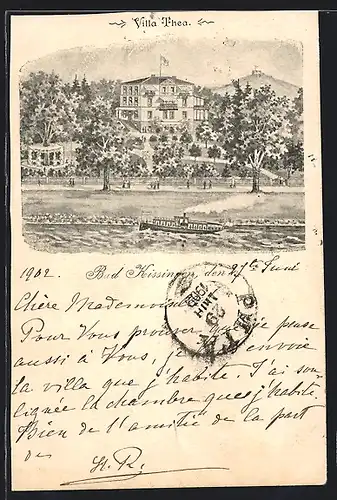 Villa Thea.
1902. Bad Kissingen, den 27te Juni
Chère Mademoiselle
Pour Vous prouver que je pense
aussi à Vous, je envoie
la villa que j'habite. J'ai sou-
lignée la chambre que j'habite.
Bien de l'amitié de la part
de
H. R.